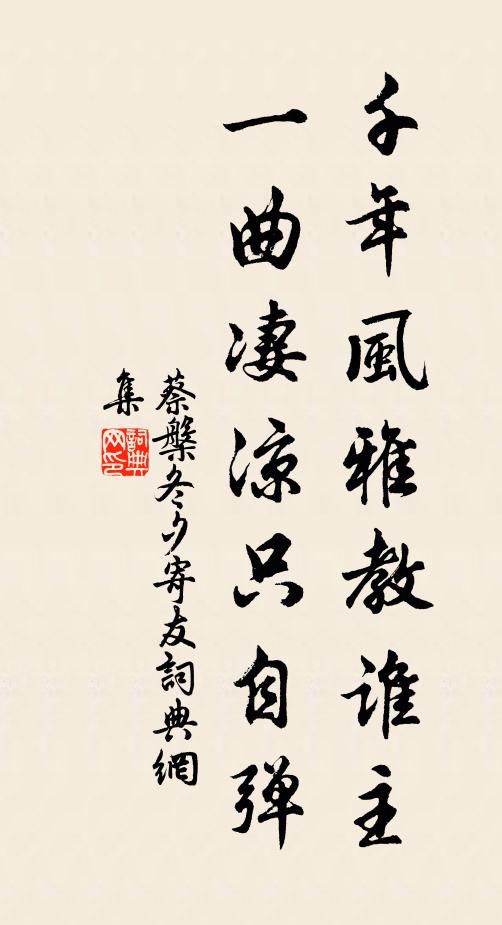 千年風雅教誰主
一曲凄凉只自弹
蔡槃冬夕寄友詞典網
集
詞典
网印